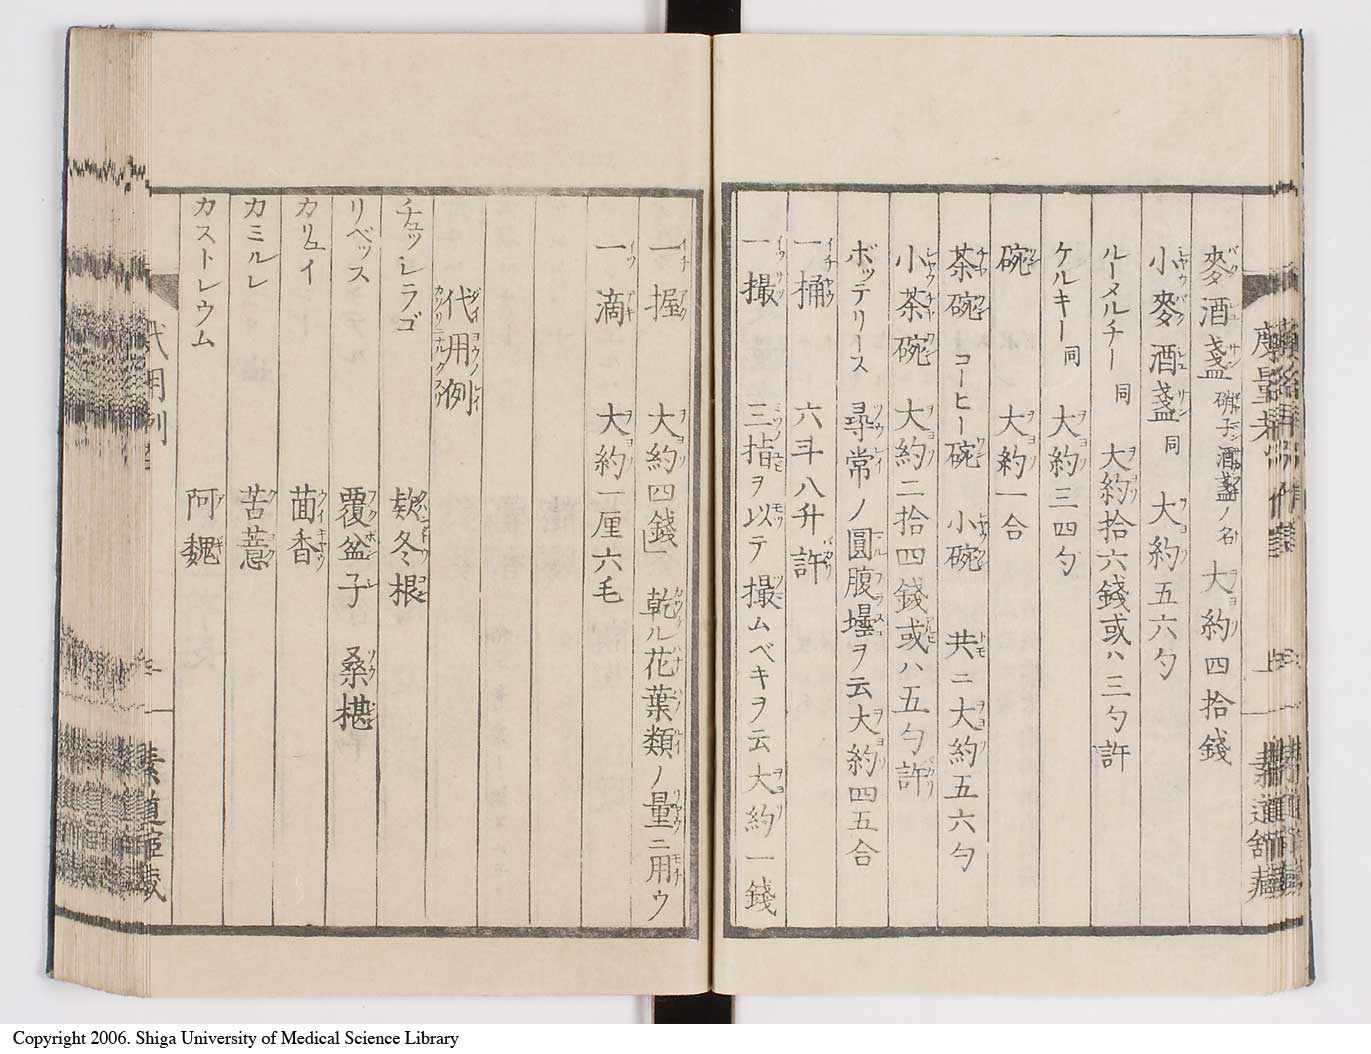 麥酒盞 硝子酒盞ノ名 大約四拾錢
小麥酒盞 同 大約五六勺
ルーメルチー 同 大約拾六錢或ハ三勺許
ケルキー 同 大約三四勺
碗 大約一合
茶碗 コーヒー碗 小碗 共ニ大約五六勺
小茶碗 大約二拾四錢或ハ五勺許
ボッテリース 尋常ノ圓腹壜ヲ云大約四五合
一桶 六斗八升許
一撮 三指ヲ以テ撮ムベキヲ云大約一錢
一握 大約四錢 乾ル花葉類ノ量ニ用ウ
一滴 大約一厘六毛
代用例
チュッシラゴ 欵冬根
リベッス 覆盆子 桑椹
カリュイ 茴香
カミルレ 苦薏
カストレウム 阿魏
代用例
Copyright 2006. Shiga University of Medical Science Library